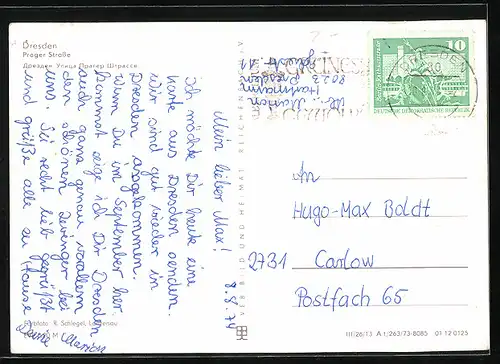 Dresden
Prager Straße
Дрезден Улица Прагер Штрассе
8.8.74
Mein lieber Max!
Ich möchte Dir heute eine
Karte aus Dresden senden.
Wir sind gut wieder in
Dresden angekommen.
Wenn Du im September her
kommst zeige ich Dir Dresden
auch ganz genau vor allem
den schönen Zwinger bei
uns. Sei recht lieb gegrüßt
und grüße alle zu Hause
Deine Marion
R. Schlegel
VEB BILD UND HEIMAT REICHENBACH
Marion
Hartmann
8023
10
DEUTSCHE DEMOKRATISCHE REPUBLIK
An
Hugo-Max Boldt
2731 Carlow
Postfach 65
III/26/13 A 1/263/73-8085 01 12 0125